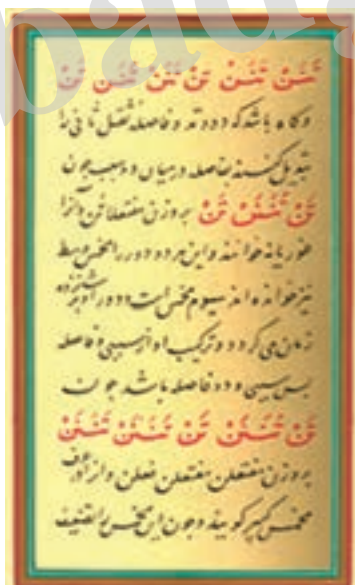 تَنَنْ تَنَنْ تَنْ تَنَنْ تَنَنْ تَنْ
و گاه باشد که دو وتد و فاصله ثقیل ثانی را
تبدیل کنند بفاصله در میان دو سبب چون
تَنْ تَنَنَنْ تَنْ بر وزن مفتعلاتن و آنرا
خوانند و این هر دو دور را مخمس وسط
نیز خوانده‌اند سیوم مخمس است و دور او بر شانزده
زمان می‌گردد و ترکیب او از سببی و فاصله
پس سببی و دو فاصله باشد چون
تَنْ تَنَنَنْ تَنْ تَنَنَنْ تَنَنَنْ
بر وزن مفتعلن مفتعلن فعلن و آنرا
مخمس کبیر گویند و چون این مخمس